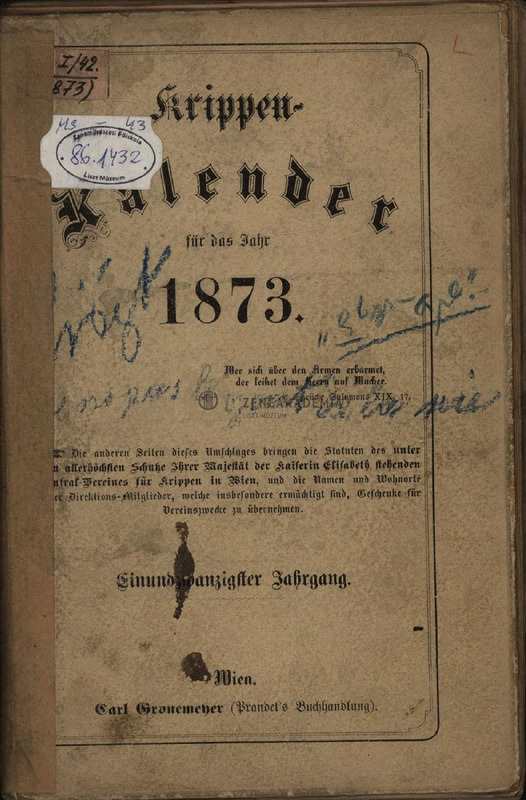 I/42.
873)
43 - 43
Zeneművészeti Főiskola
86.1432
Liszt Múzeum
Krippen-
Kalender
für das Jahr
1873.
Wer sich über den Armen erbarmet,
der leihet dem Herrn auf Wucher.
Sprüche Salomons XIX, 17.
ZENEAKADÉMIA
LISZT MÚZEUM
Die anderen Seiten dieses Umschlages bringen die Statuten des unter
n allerhöchsten Schutze Ihrer Majestät der Kaiserin Elisabeth stehenden
ntral-Vereines für Krippen in Wien, und die Namen und Wohnorte
er Direktions-Mitglieder, welche insbesondere ermächtigt sind, Geschenke für
Vereinszwecke zu übernehmen.
Einundzwanzigster Jahrgang.
Wien.
Carl Gronemeyer (Prandel's Buchhandlung).